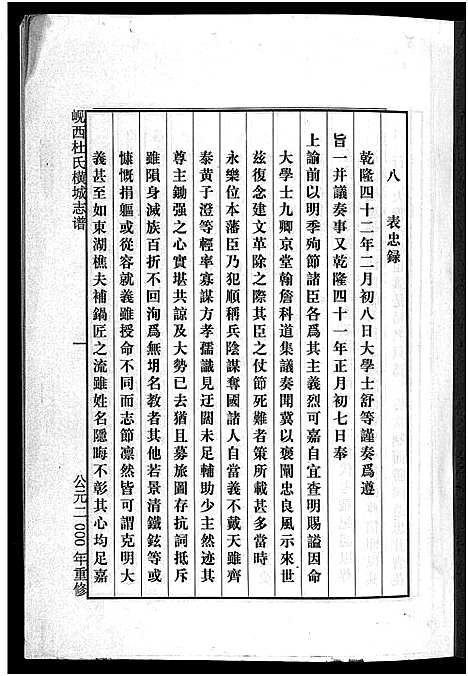 八　表忠録
乾隆四十二年二月初八日大學士舒等謹奏爲遵
旨一并議奏事又乾隆四十一年正月初七日奉
上諭前以明季殉節諸臣各爲其主義烈可嘉自宜查明賜謚因命
大學士九卿京堂翰詹科道集議奏聞冀以褒闡忠良風示來世
兹復念建文革除之際其臣之仗節死難者策所載甚多當時
永樂位本藩臣乃犯順稱兵陰謀奪國諸人自當義不戴天雖齊
泰黃子澄等輕率寡謀方孝儒識見迂闊未足輔助少主然其
尊主鋤强之心實堪共諒及大勢已去猶且募旅圖存抗詞抵斥
雖隕身滅族百折不回洵爲無玥名教者其他若景清鐵鉉等或
慷慨捐軀或從容就義雖授命不同而志節凛然皆可謂克明大
義甚至如東湖樵夫補鍋匠之流雖姓名隱晦不彰其心均足嘉
峴西杜氏橫城志谱
一
公元二000年重修